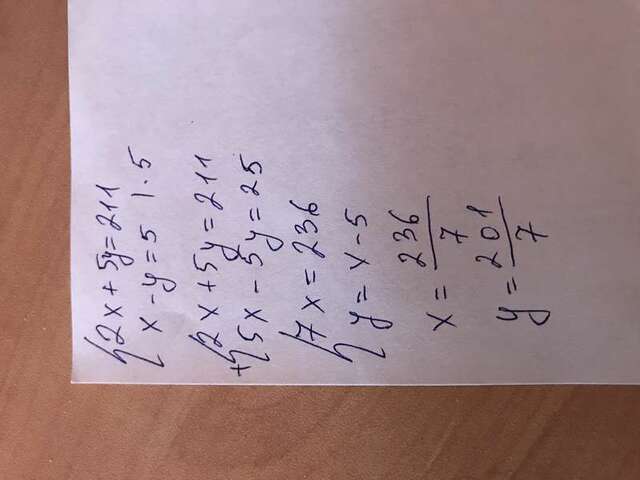 2x + 5y = 211
x - y = 5 | · 5
2x + 5y = 211
+ 5x - 5y = 25
7x = 236
y = x - 5
x = 236/7
y = 201/7